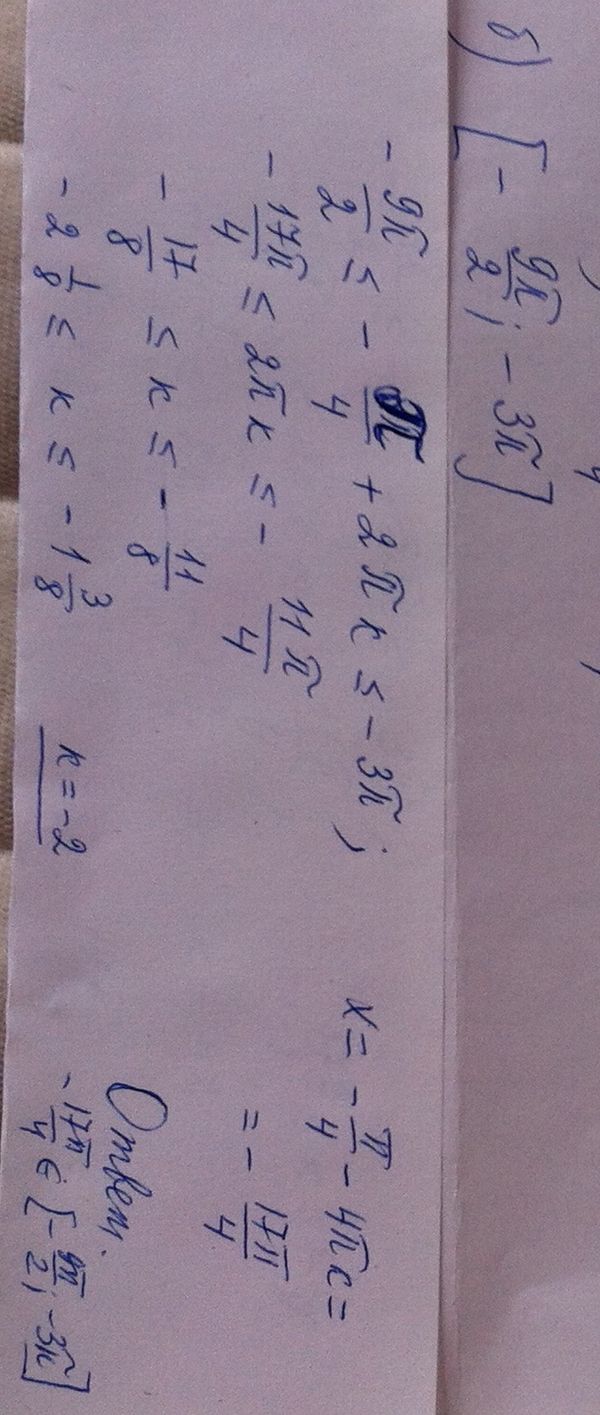 б) [-9π/2; -3π]
-9π/2 ≤ -π/4 + 2πk ≤ -3π;
-17π/4 ≤ 2πk ≤ -11π/4
-17/8 ≤ k ≤ -11/8
-2 1/8 ≤ k ≤ -1 3/8
k = -2
x = -π/4 - 4π =
= -17π/4
Ответ.
-17π/4 ∈ [-9π/2; -3π]